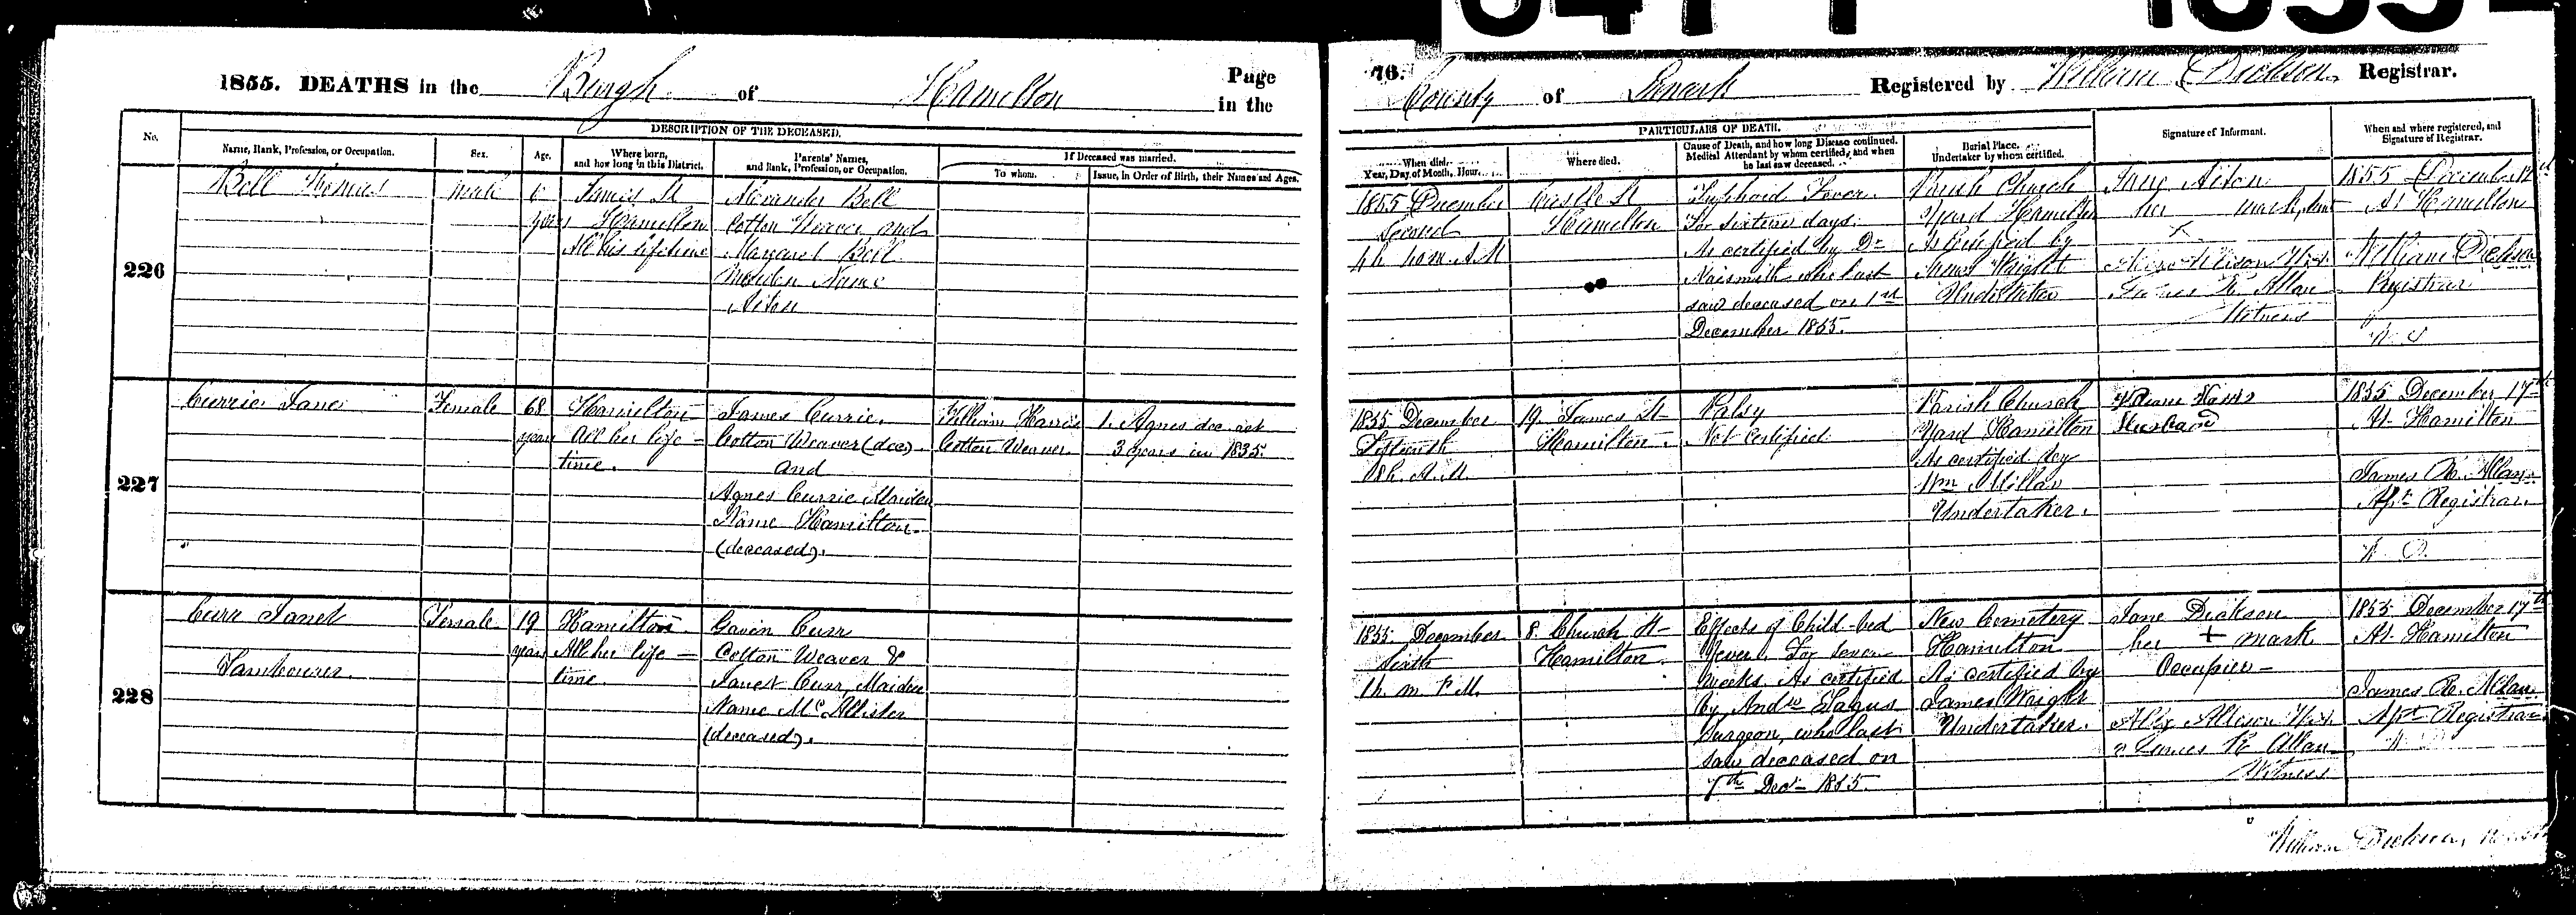 1855. DEATHS in the Burgh of Hamilton Page 76.
in the County of Lanark Registered by William Dickson Registrar.
No.
DESCRIPTION OF THE DECEASED.
Name, Rank, Profession, or Occupation.
Sex.
Age.
Where born,
and how long in this District.
Parents' Names,
and Rank, Profession, or Occupation.
If Deceased was married.
To whom.
Issue, in Order of Birth, their Names and Ages.
PARTICULARS OF DEATH.
When died.
Year, Day of Month, Hour.
Where died.
Cause of Death, and how long Disease continued.
Medical Attendant by whom certified, and when
he last saw deceased.
Burial Place.
Undertaker by whom certified.
Signature of Informant.
When and where registered, and
Signature of Registrar.
226
Bell Thomas
Male
6
years
James St
Hamilton
All his lifetime
Alexander Bell
Cotton Weaver and
Margaret Bell
Maiden Name
Aiton
1855 December
Second
4h 40m A.M
Castle St
Hamilton
Typhoid Fever
For sixteen days.
As certified by Dr
Naismith who last
saw deceased on 1st
December 1855.
Parish Church
Yard Hamilton
As Certified by
James Wright
Undertaker
Jane Aiton
her mark
x
James R. Allan
Witness
1855 December
At Hamilton
William Dickson
Registrar
227
Currie Jane
Female
68
years
Hamilton
All her life-
time.
James Currie,
Cotton Weaver (dec).
and
Agnes Currie Maiden
Name Hamilton
(deceased).
William Harris
Cotton Weaver
1. Agnes dec. aet
3 years in 1835.
1855 December
Fifteenth
A.M.
19 James St
Hamilton.
Palsy
Not certified
Parish Church
Yard Hamilton
As certified by
Wm Millar
Undertaker.
William Harris
Husband
1855 December 17th
At Hamilton
James R. Allan
Asst. Registrar.
W. D.
228
Curr Janet
Tambourer.
Female
19
years
Hamilton
All her life-
time.
Gavin Curr
Cotton Weaver &
Janet Curr, Maiden
Name McAllister
(deceased).
1855 December
Sixth
1h. m P.M.
8 Church St
Hamilton.
Effects of Child-bed
Fever. For seven
weeks. As certified
by Andw
Surgeon, who last
saw deceased on
7th Decr 1855.
New Cemetery
Hamilton
As certified by
James Wright
Undertaker.
Jane Dickson
her + mark
Occupier
James R. Allan
Witness
1855 December 17th
At Hamilton
James R. Allan
Asst. Registrar
William Dickson,